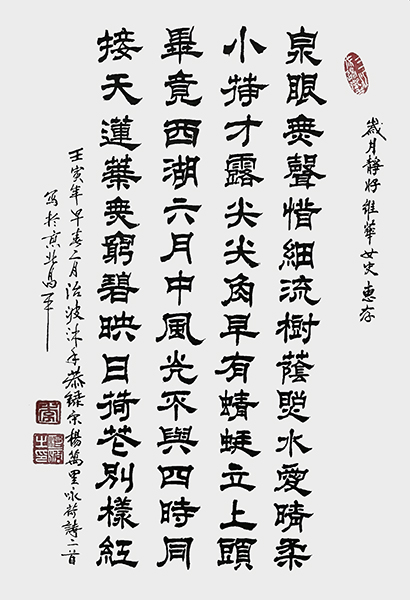 歲月靜好 維華女史 惠存
泉眼無聲惜細流樹蔭照水愛晴柔
小荷才露尖尖角早有蜻蜓立上頭
畢竟西湖六月中風光不與四時同
接天蓮葉無窮碧映日荷花別樣紅
壬寅年早春二月治波沐手恭錄宋楊萬里咏荷詩二首
寫於京北昌平